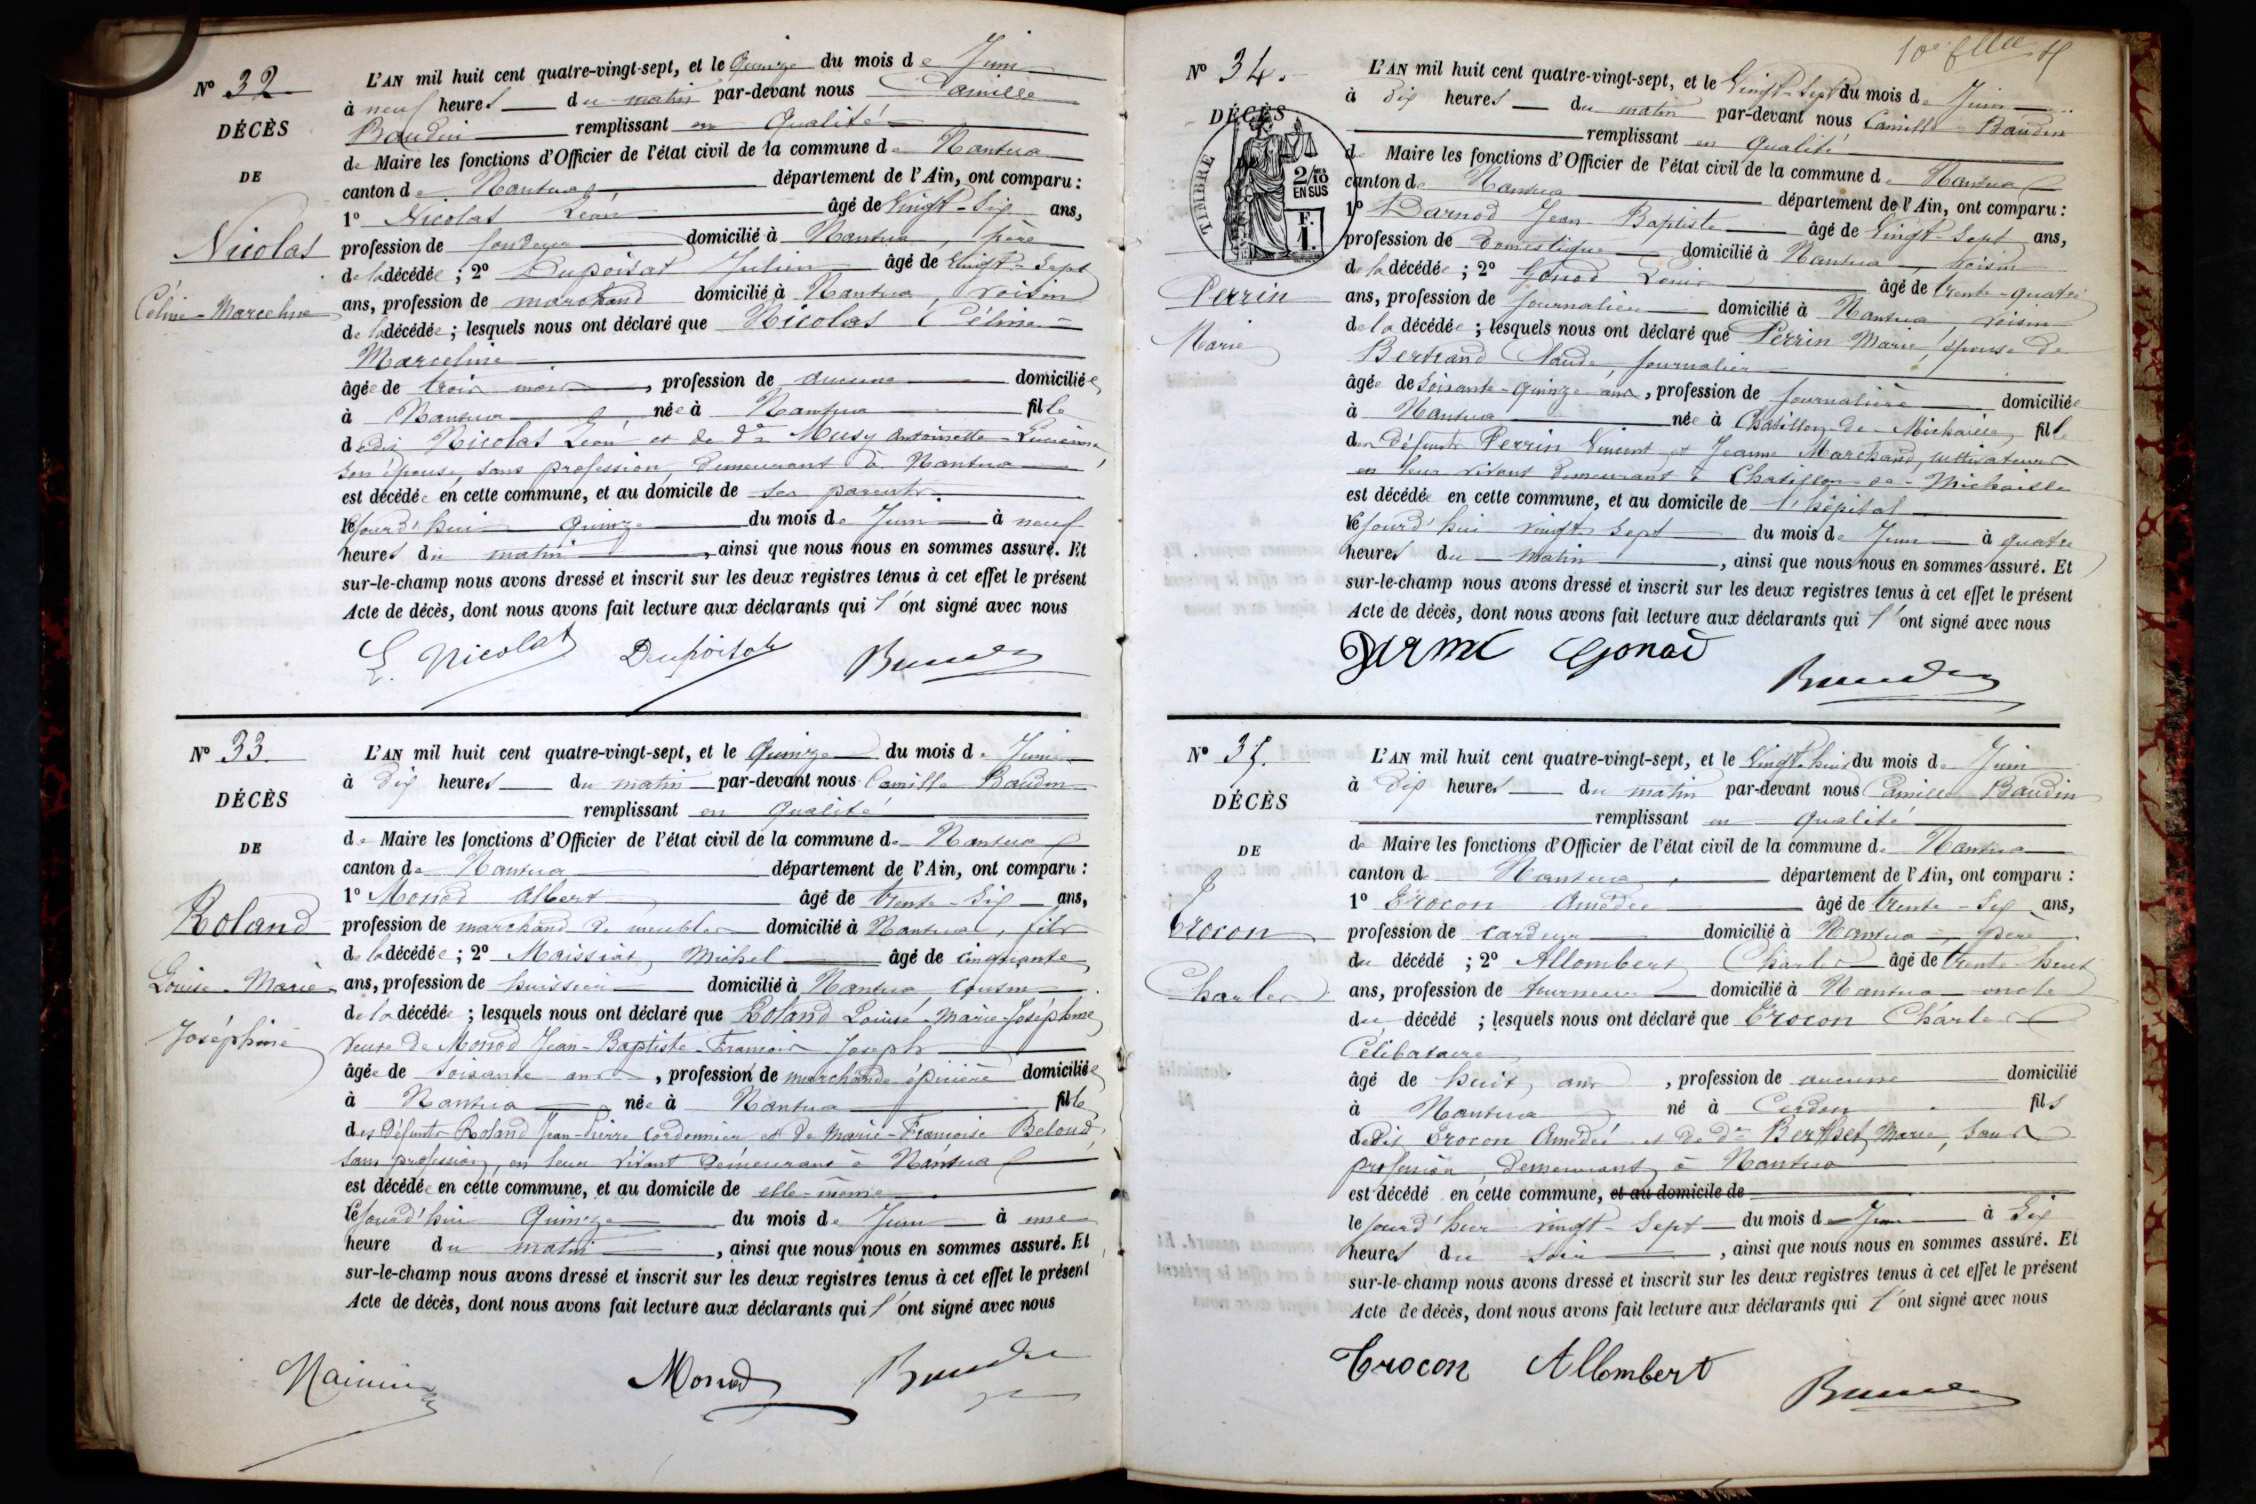 N° 32
DÉCÈS
DE
Nicolas
Céline-Marceline
L'AN mil huit cent quatre-vingt-sept, et le Quinze du mois de Juin
à neuf heures du matin par-devant nous Camille
Baudin remplissant en qualité
de Maire les fonctions d'Officier de l'état civil de la commune de Nantua
canton de Nantua département de l'Ain, ont comparu :
1° Nicolas Léon âgé de Vingt-Six ans,
profession de domicilié à Nantua, père
de la décédée ; 2° Dupoisat Julien âgé de Vingt-Sept
ans, profession de marchand domicilié à Nantua, voisin
de la décédée ; lesquels nous ont déclaré que Nicolas Céline-
Marceline
âgée de trois mois, profession de aucune domiciliée
à Nantua née à Nantua fille
dedit Nicolas Léon et de de Musy Antoinette-Lucienne
son épouse, sans profession, demeurant à Nantua
est décédée en cette commune, et au domicile de ses parents.
le jourd'hui quinze du mois de Juin à neuf
heures du matin, ainsi que nous nous en sommes assuré. Et
sur-le-champ nous avons dressé et inscrit sur les deux registres tenus à cet effet le présent
Acte de décès, dont nous avons fait lecture aux déclarants qui l'ont signé avec nous
L. Nicolas Dupoisat Baudin
N° 33.
DÉCÈS
DE
Roland
Louise-Marie-
Joséphine
L'AN mil huit cent quatre-vingt-sept, et le Quinze du mois de Juin
à dix heures du matin par-devant nous Camille Baudin
remplissant en qualité
de Maire les fonctions d'Officier de l'état civil de la commune de Nantua
canton de Nantua département de l'Ain, ont comparu :
1° Monod Albert âgé de trente-six ans,
profession de marchand de meubles domicilié à Nantua, fils
de la décédée ; 2° Maissiat Michel âgé de cinquante
ans, profession de huissier domicilié à Nantua cousin
de la décédée ; lesquels nous ont déclaré que Roland Louise-Marie-Joséphine
veuve de Monod Jean-Baptiste-François Joseph
âgée de soixante ans, profession de marchande épicière domiciliée
à Nantua née à Nantua fille
des défunts Roland Jean-Pierre cordonnier et de Marie-Françoise Beloud,
sans profession, en leur vivant demeurant à Nantua
est décédée en cette commune, et au domicile de elle-même
le jourd'hui Quinze du mois de Juin à une
heure du matin, ainsi que nous nous en sommes assuré. Et
sur-le-champ nous avons dressé et inscrit sur les deux registres tenus à cet effet le présent
Acte de décès, dont nous avons fait lecture aux déclarants qui l'ont signé avec nous
Monod Baudin
N° 34.
DÉCÈS
TIMBRE
2/10
EN SUS
F.
1.
Perrin
Marie
L'AN mil huit cent quatre-vingt-sept, et le Vingt-Sept du mois de Juin
à dix heures du matin par-devant nous Camille Baudin
remplissant en qualité
de Maire les fonctions d'Officier de l'état civil de la commune de Nantua
canton de Nantua département de l'Ain, ont comparu :
1° Darnod Jean-Baptiste âgé de Vingt-Sept ans,
profession de Domestique domicilié à Nantua, voisin
de la décédée ; 2° Gonod Louis âgé de trente-quatre
ans, profession de journalier domicilié à Nantua, voisin
de la décédée ; lesquels nous ont déclaré que Perrin Marie, épouse de
Bertrand Claude, journalier
âgée de soixante-quinze ans, profession de journalière domiciliée
à Nantua née à Chatillon-de-Michaille fille
des défunts Perrin Vincent et Jeanne Marchand, cultivateurs
en leur vivant demeurant à Chatillon-de-Michaille
est décédée en cette commune, et au domicile de l'hôpital
le jourd'hui vingt sept du mois de Juin à quatre
heures du matin, ainsi que nous nous en sommes assuré. Et
sur-le-champ nous avons dressé et inscrit sur les deux registres tenus à cet effet le présent
Acte de décès, dont nous avons fait lecture aux déclarants qui l'ont signé avec nous
Gonod Baudin
N° 35.
DÉCÈS
DE
Crocon
Charles
L'AN mil huit cent quatre-vingt-sept, et le Vingt-huit du mois de Juin
à dix heures du matin par-devant nous Camille Baudin
remplissant en qualité
de Maire les fonctions d'Officier de l'état civil de la commune de Nantua
canton de Nantua département de l'Ain, ont comparu :
1° Crocon Amédée âgé de trente-six ans,
profession de cardeur domicilié à Nantua, père
du décédé ; 2° Allombert Charles âgé de trente huit
ans, profession de tourneur domicilié à Nantua oncle
du décédé ; lesquels nous ont déclaré que Crocon Charles
Célibataire
âgé de huit ans, profession de aucune domicilié
à Nantua né à Cerdon fils
dedit Crocon Amédée et de de Berthet Marie, sans
profession demeurant à Nantua
est décédé en cette commune, et au domicile de
le jourd'hier vingt-sept du mois de Juin à six
heures du soir, ainsi que nous nous en sommes assuré. Et
sur-le-champ nous avons dressé et inscrit sur les deux registres tenus à cet effet le présent
Acte de décès, dont nous avons fait lecture aux déclarants qui l'ont signé avec nous
Crocon Allombert Baudin